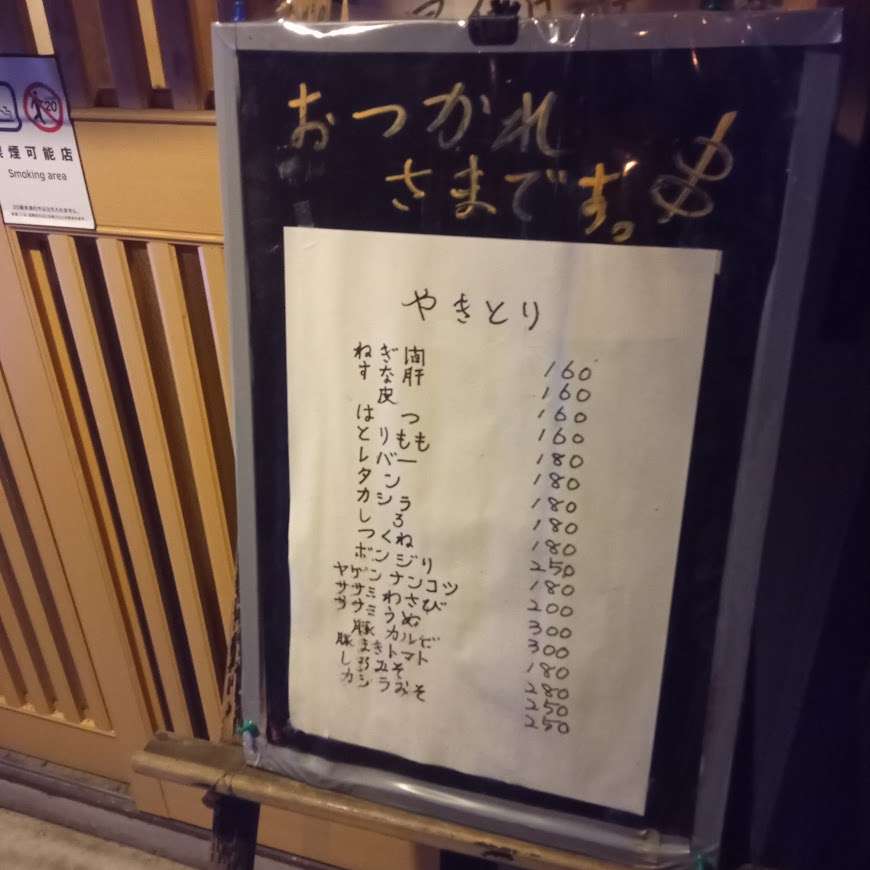 おつかれ
さまです。
串
やきとり
ねぎ間 160
すな肝 160
皮 160
はつ 160
とりもも 180
レバー 180
タン 180
カシラ 180
しろ 180
つくね 250
ボンジリ 180
ヤゲンナンコツ 200
ササミわさび 300
ササミうめ 300
豚カルビ 180
豚まきトマト 280
しろみそ 250
カシラみそ 250
20
喫煙可能店
Smoking area